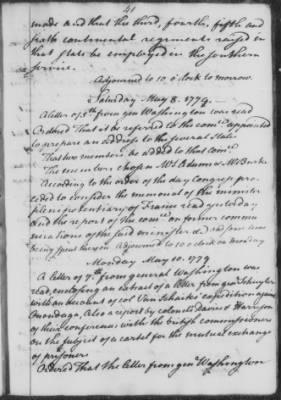 41
made and that the third, fourth, fifth and
sixth continental regiments raised in
that state be employed in the southern
service.
Adjourned to 10 o'clock to morrow.
Saturday May 8. 1779.
A letter of 5th from gen Washington was read
Ordred That it be referred to the comee appointed
to prepare an address to the several states
That two members be added to that comee.
The members chosen Mr Adams & Mr Burke
According to the order of the day Congress pro-
ceeded to consider the memorial of the minister
plenipotentiary of France read yesterday
and the report of the comee on former commu
nications of the said minister & and some time
being spent thereon Adjourned to 10 o clock on Monday
Monday May 10. 1779
A letter of 7th from general Washington was
read, enclosing an extract of a letter from genl Schuyler
with an account of col Van Schaick's expedition against
Onondaga, Also a report by colonels Davies & Harrison
of their conference with the British commissioners
on the subject of a cartel for the mutual exchange
of prisoners
Ordered That the letter from genl Washington